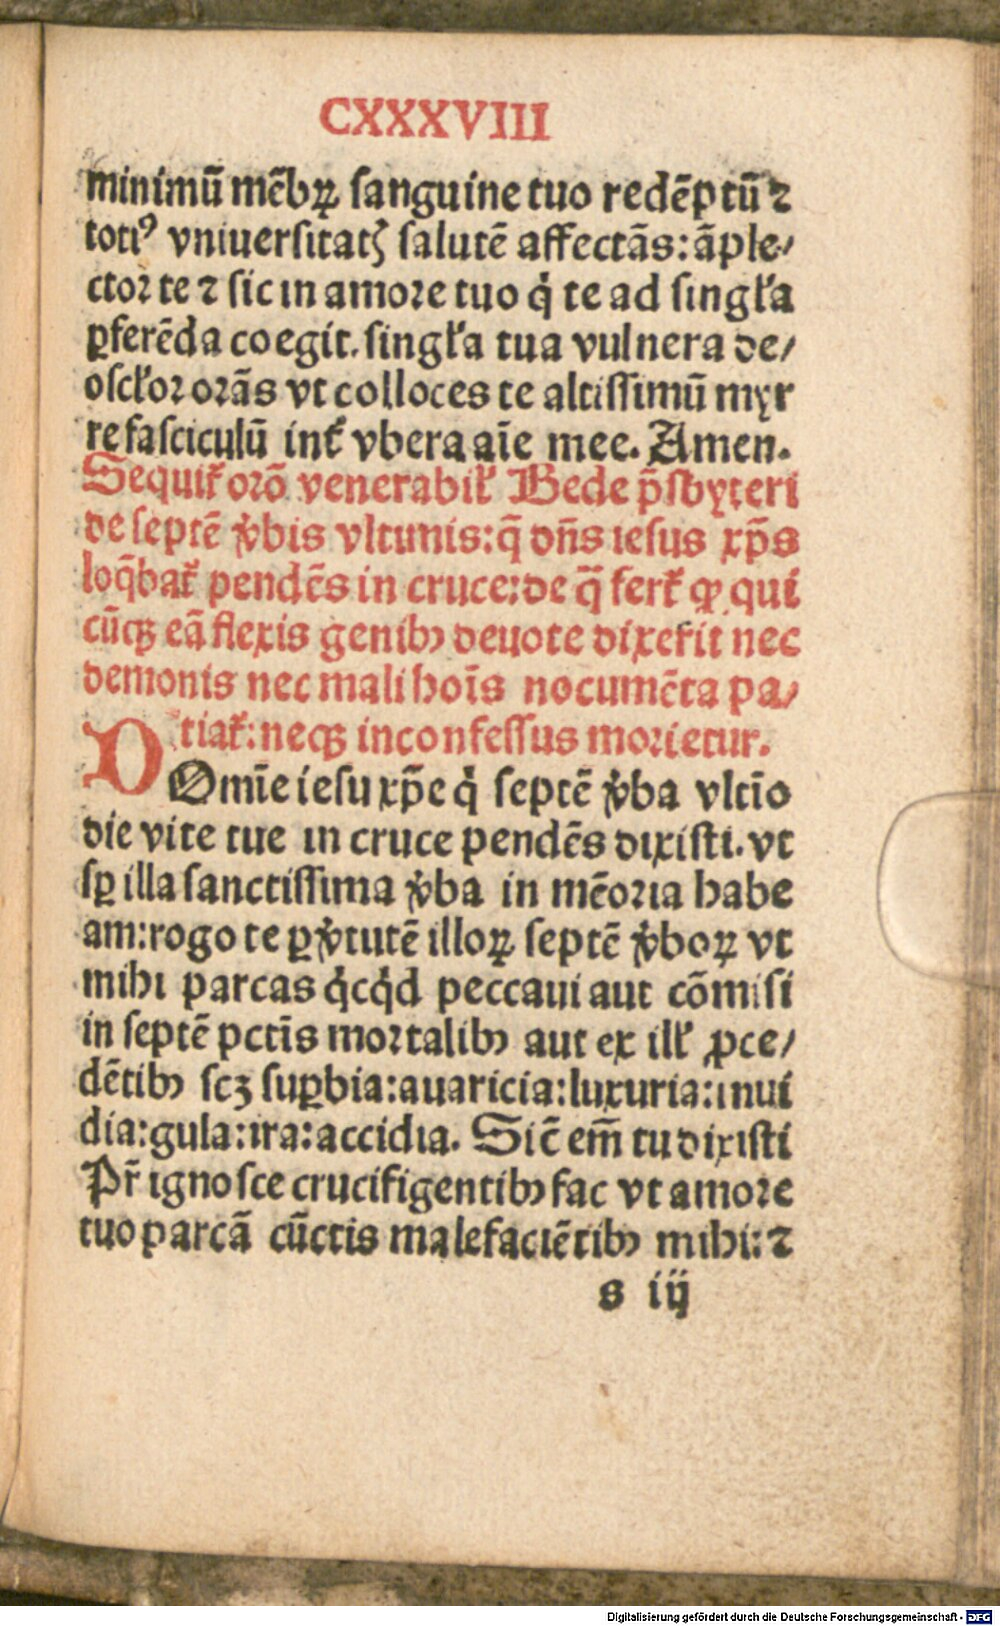 CXXXVIII
minimū mēbꝝ sanguine tuo redēptū ⁊
totiꝰ vniuersitatꝭ salutē affectās: āple⸗
ctor te ⁊ sic in amore tuo q̇ te ad singl̓a
ꝑferēda coegit. singl̓a tua vulnera de⸗
oscl̓or orās vt colloces te altissimū myr
re fasciculū int̓ vbera aīe mee. Amen.
Sequit̓ orō venerabil̓ Bede p̄sbyteri
de septē v̓bis vltimis: q̄ dn̄s iesus xp̄s
loq̄bat̓ pendēs in cruce: de q̄ fert̓ ꝙ qui
cūqꝫ eā flexis genibꝰ deuote dixerit nec
demonis nec mali hoīs nocumēta pa⸗
tiat̓: neqꝫ inconfessus morietur.
DOmīe iesu xp̄e q̇ septē v̓ba vltīo
die vite tue in cruce pendēs dixisti. vt
sꝑ illa sanctissima v̓ba in mēoria habe
am: rogo te ꝑ v̓tutē illoꝝ septē v̓boꝝ vt
mihi parcas q̇cq̇d peccaui aut cōmisi
in septē pctīs mortalibꝰ aut ex ill̓ ꝓce⸗
dētibꝰ scꝫ suꝑbia: auaricia: luxuria: inui
dia: gula: ira: accidia. Sic̄ em̄ tu dixisti
Pr̄ ignosce crucifigentibꝰ fac vt amore
tuo parcā cūctis malefaciētibꝰ mihi: ⁊
s iij
Digitalisierung gefördert durch die Deutsche Forschungsgemeinschaft - DFG